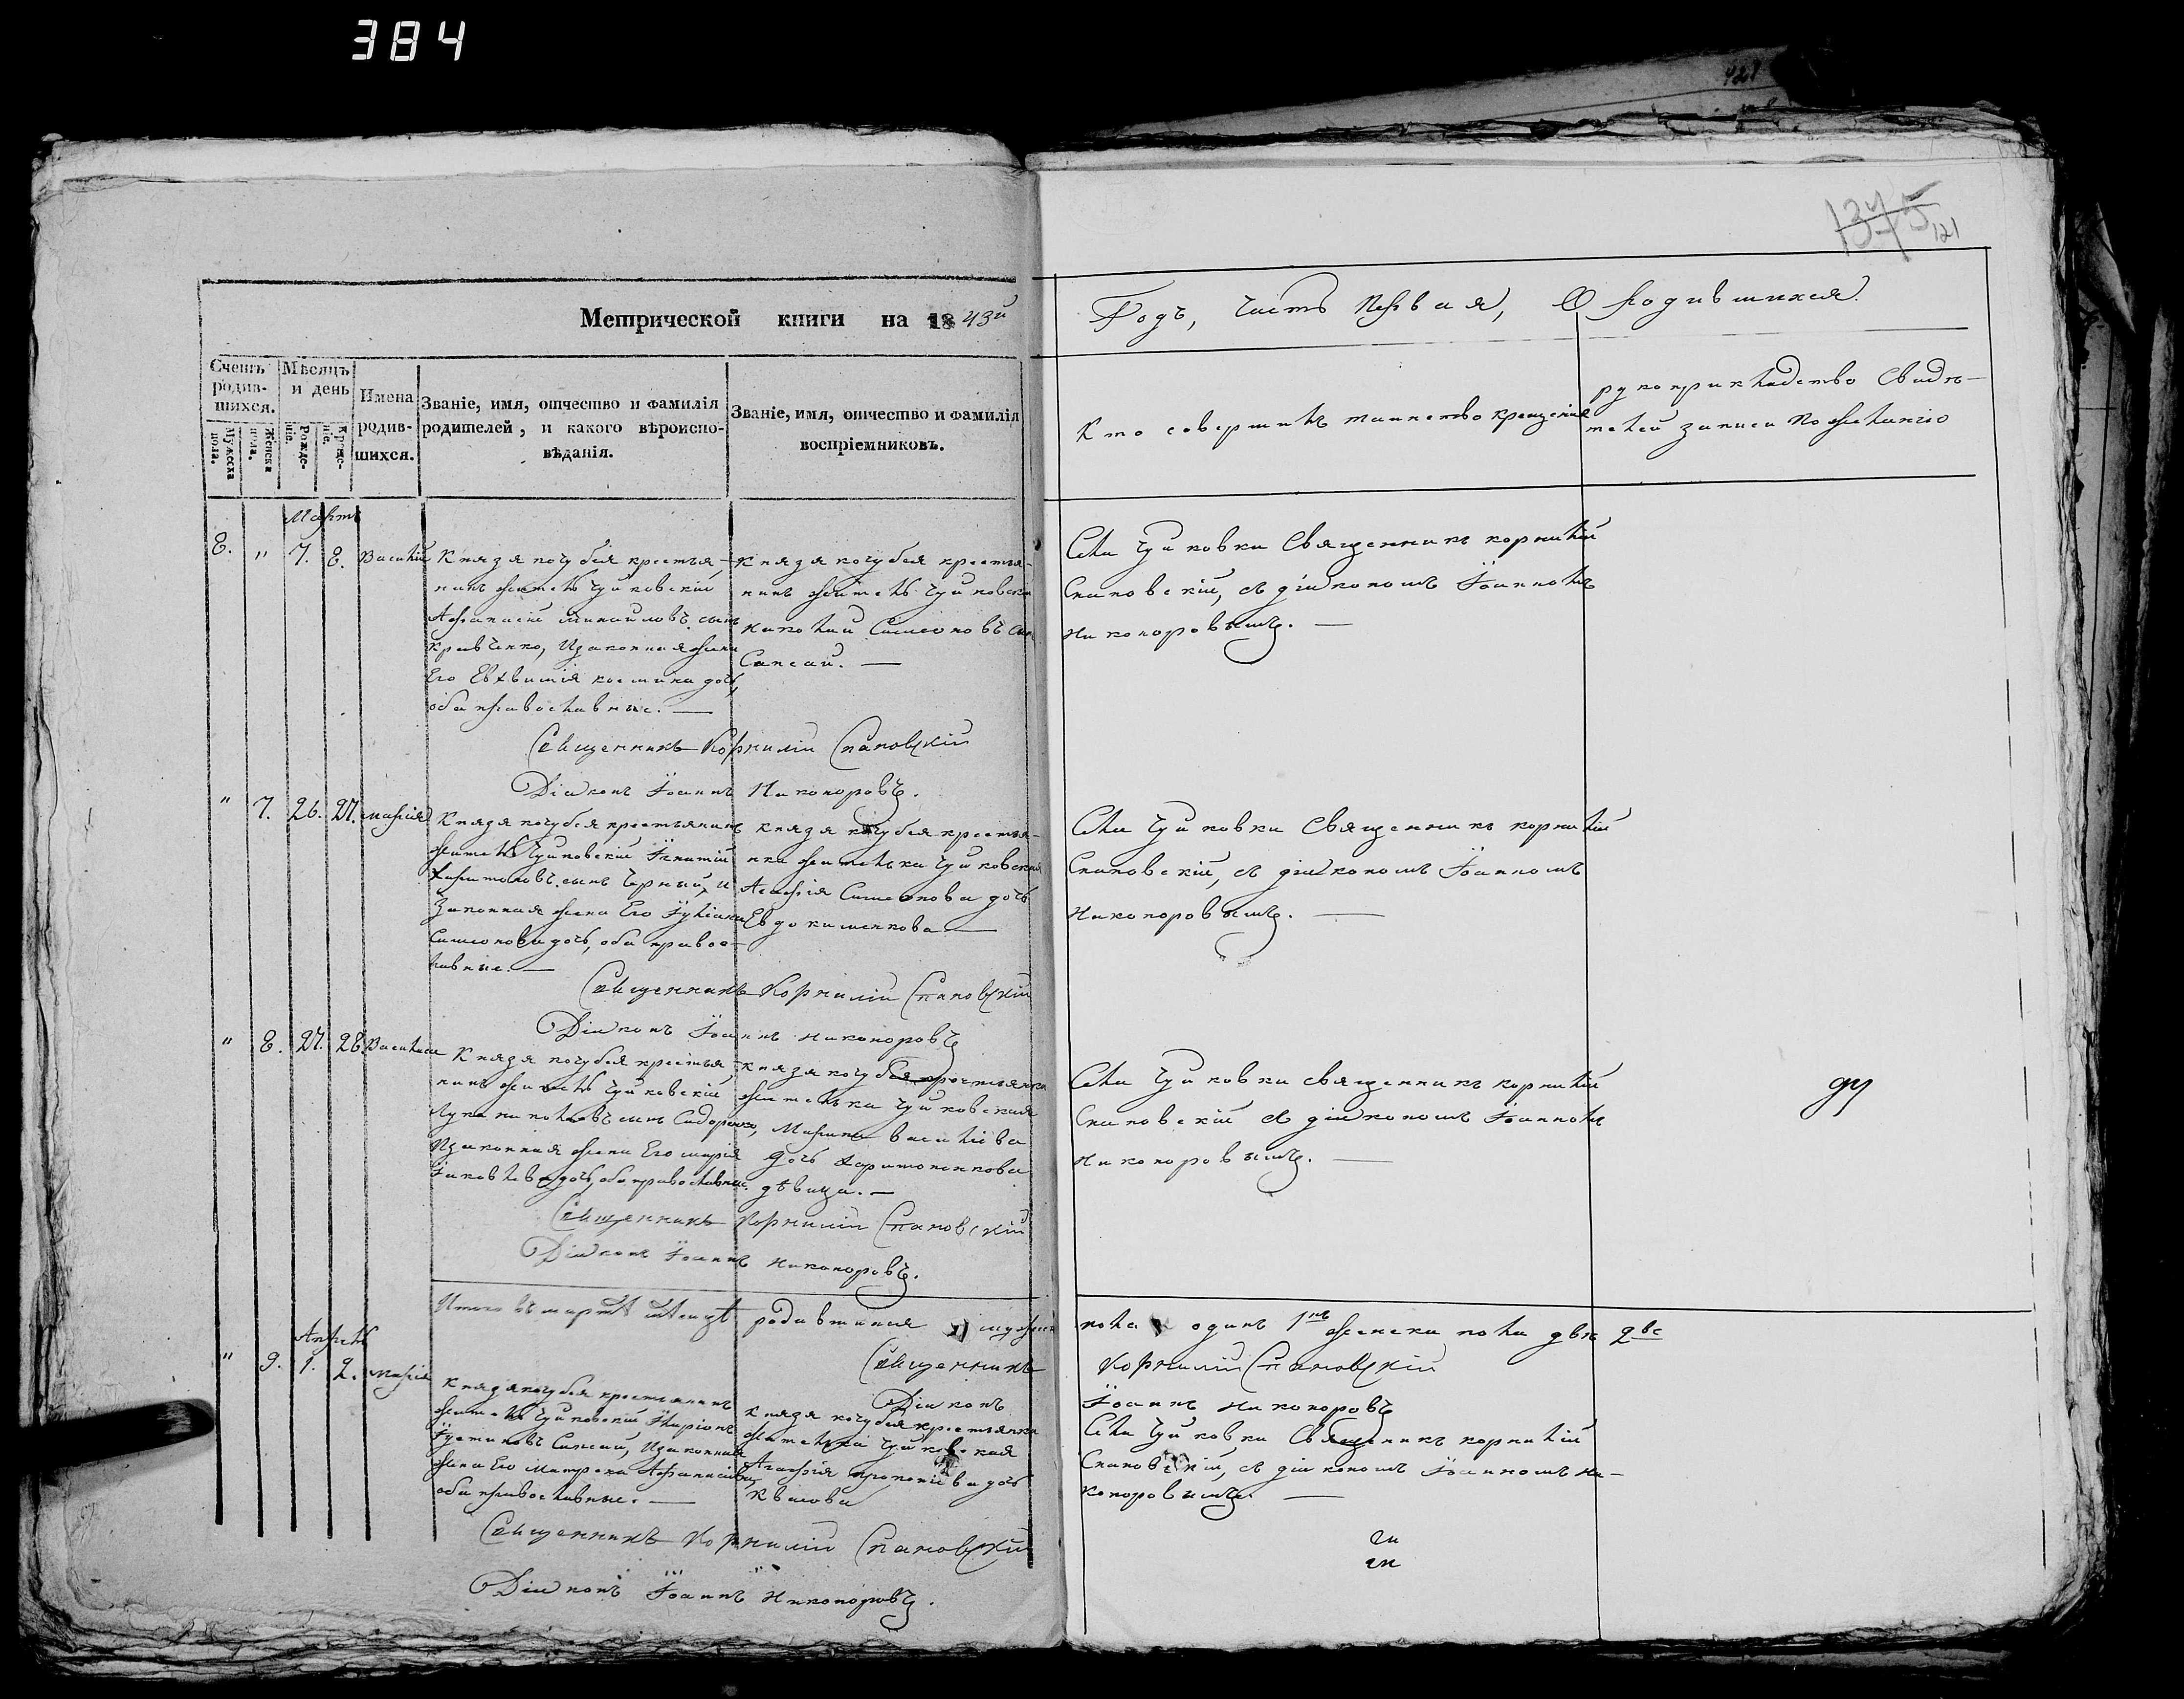 384
421
1375
121
Метрической книги на 1843й
Годъ, Часть Первая, О родившихся.
Счетъ родив-шихся.
Мужеска пола.
Женска пола.
Мѣсяцъ и день
Рожде-нія.
Креще-нія.
Имена родив-шихся.
Званіе, имя, отчество и фамилія
родителей, и какого вѣроиспо-
вѣданія.
Званіе, имя, отчество и фамилія
воспріемниковъ.
Кто совершилъ таинство крещенія
рукоприкладство Свидѣ-
телей записи по желанію
Мартъ
8. " 7. 8. Василій
Князя кочубея крестья-
нинъ житель Чуйковскій
Афанасій Михайловъ сынъ
Кравченко, И законная жена
Его Евѳимія космина дочь,
оба православные. —
Князя кочубея крестья-
нинъ житель Чуйковскій
Николай Симеоновъ сынъ
Сапсай. —
Села Чуйковки Священникъ корнилій
Спановскій, съ діакономъ Іоанномъ
Никоноровымъ. —
Священникъ Корнилій Спановскій
Діаконъ Іоаннъ Никоноровъ.
" 7. 26. 27. Марія
Князя кочубея крестьянинъ
житель Чуйковскій Игнатій
Харитоновъ сынъ Черный, И
Законная жена Его Іуліана
Симеонова дочь, оба правос-
лавные. —
Князя кочубея крестья-
нка жителька Чуйковская
Агафія Симеонова дочь
Евдокименкова —
Села Чуйковки Священникъ корнилій
Спановскій, съ діакономъ Іоанномъ
Никоноровымъ. —
Священникъ Корнилій Спановскій
Діаконъ Іоаннъ Никоноровъ
" 8. 27. 28. Василиса
Князя кочубея крестья-
нинъ житель Чуйковскій
Лука сынъ Сидоренко,
И законная жена Его марія
Іаковлева дочь, оба православные.
Князя кочубея крестьянка
жителька Чуйковская
Марина василіева
дочь Харитоненкова
дѣвица. —
Села Чуйковки священникъ корнилій
Спановскій съ діакономъ Іоанномъ
Никоноровымъ. —
Священникъ Корнилій Спановскій
Діаконъ Іоаннъ Никоноровъ.
Итого въ мартѣ мѣсяцѣ родившихся мужеска
пола одинъ 1нъ женска пола двѣ 2вѣ
Священникъ Корнилій Спановскій
Діаконъ Іоаннъ Никоноровъ
Апрѣль
" 9. 1. 2. Марія
Князя кочубея крестьянинъ
житель Чуйковскій Иларіонъ
Іустиновъ Сапсай, И законная
жена Его Матрона Афанасіева,
оба православные. —
Князя кочубея крестьянка
жителька Чуйковская
Агафія прокопіева дочь
Квашова
Села Чуйковки Священникъ корнилій
Спановскій, съ діакономъ Іоанномъ Ни-
коноровымъ. —
Священникъ Корнилій Спановскій
Діаконъ Іоаннъ Никоноровъ.